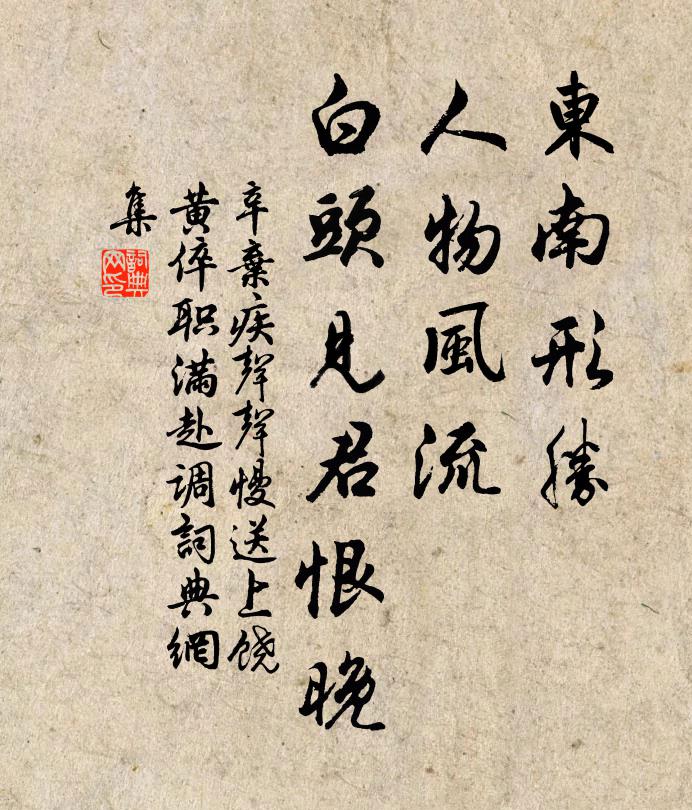 東南形勝
人物風流
白頭見君恨晚
辛棄疾聲聲慢送上饶
黃倅职滿赴调詞典網
集
詞典
网印